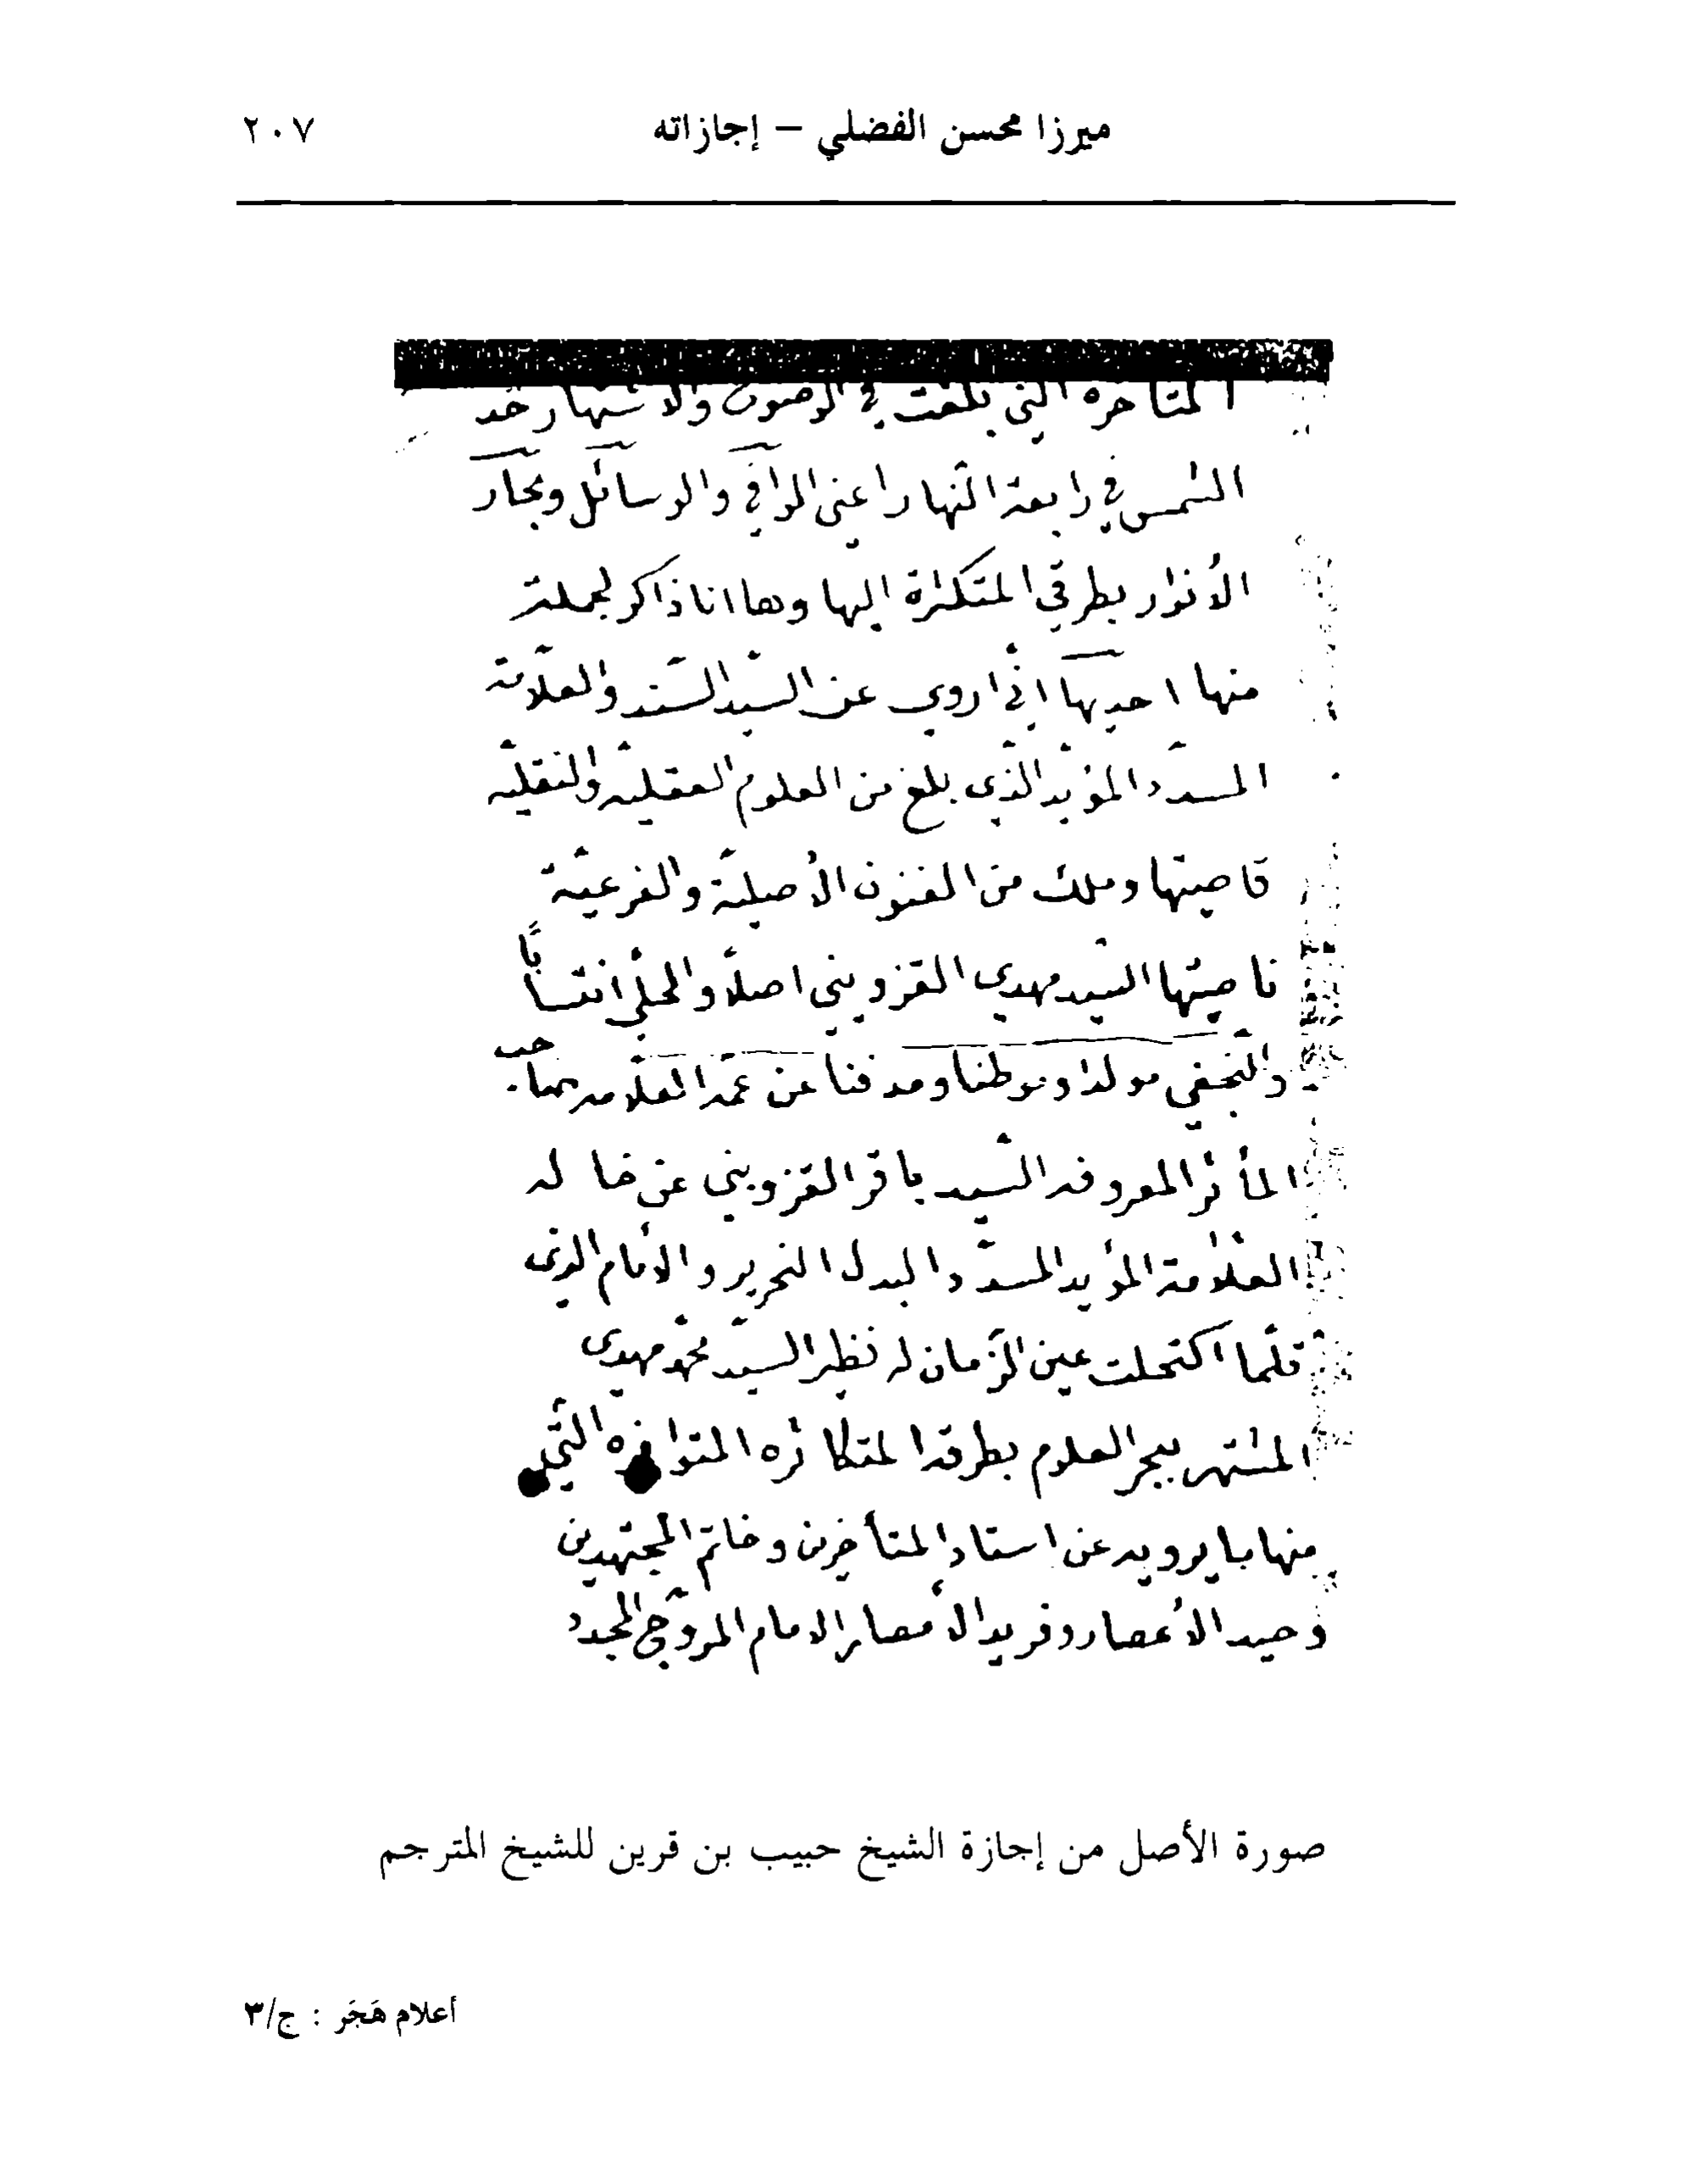 ميرزا محسن الفضلي – إجازاته ٢٠٧
المتأخرة التي بلغت في الوضوح والاشتهار حد
الشمس في رابعة النهار اعني الوافي والوسائل وبحار
الأنوار بطرقي المتكثرة اليها وها انا ذاكر لجملة
منها احديها اني اروي عن السيد السند والعلّامة
المسدد المؤيد الذي بلغ من العلوم العقلية والنقلية
قاصيتها وملك من الفنون الأصلية والفرعية
ناصيتها السيد مهدي القزويني اصلاً والحلي انتساباً
والنجفي مولدا وموطنا ومدفنا عن عمه العلامة صاحب
المأثر المعروفه السيد باقر القزويني عن خاله
العلّامة المؤيد المسدد البدل النحرير والأمام الذي
قلّما اكتحلت عين الزمان له نظير السيد محمد مهدي
المشتهر ببحر العلوم بطرقه المتكاثره المتوافره التي
منها ما يرويه عن استاد المتأخرين وخاتم المجتهدين
وحيد الأعصار وفريد الأمصار الامام المروّج المجدد
صورة الأصل من إجازة الشيخ حبيب بن قرين للشيخ المترجم
أعلام هَجَر : ج/٣